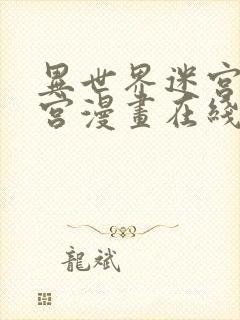 異世界迷宮
宮漫畫在綫
龍斌